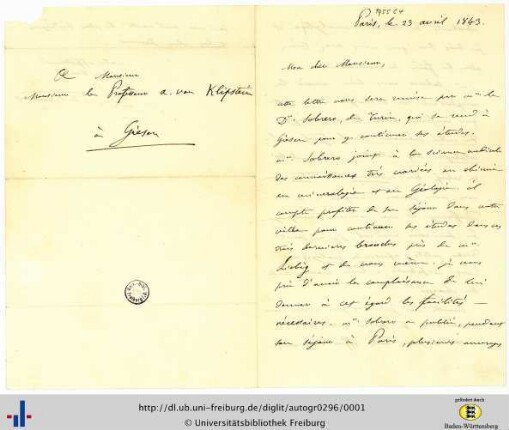 A Monsieur
Monsieur le Professeur A. von Klipstein
à Giesen
Paris, le 23 avril 1843.
Mon cher Monsieur,
cette lettre vous sera remise par Mr. le
Dr. Sobrero, de Turin, qui se rend à
Giesen pour y continuer ses études.
Mr. Sobrero joint à la science médicale
des connaissances très variées en chimie
en minéralogie et en Géologie il
compte profiter de son séjour dans votre
ville pour continuer ses études dans ces
trois dernières branches près de Mr.
Liebig et de vous même. je vous
prie d'avoir la complaisance de lui
donner à cet égard les facilités
nécessaires. Mr. Sobrero a publié, pendant
son séjour à Paris, plusieurs ouvrages
http://dl.ub.uni-freiburg.de/diglit/autogr0296/0001
© Universitätsbibliothek Freiburg
gefördert durch
Baden-Württemberg